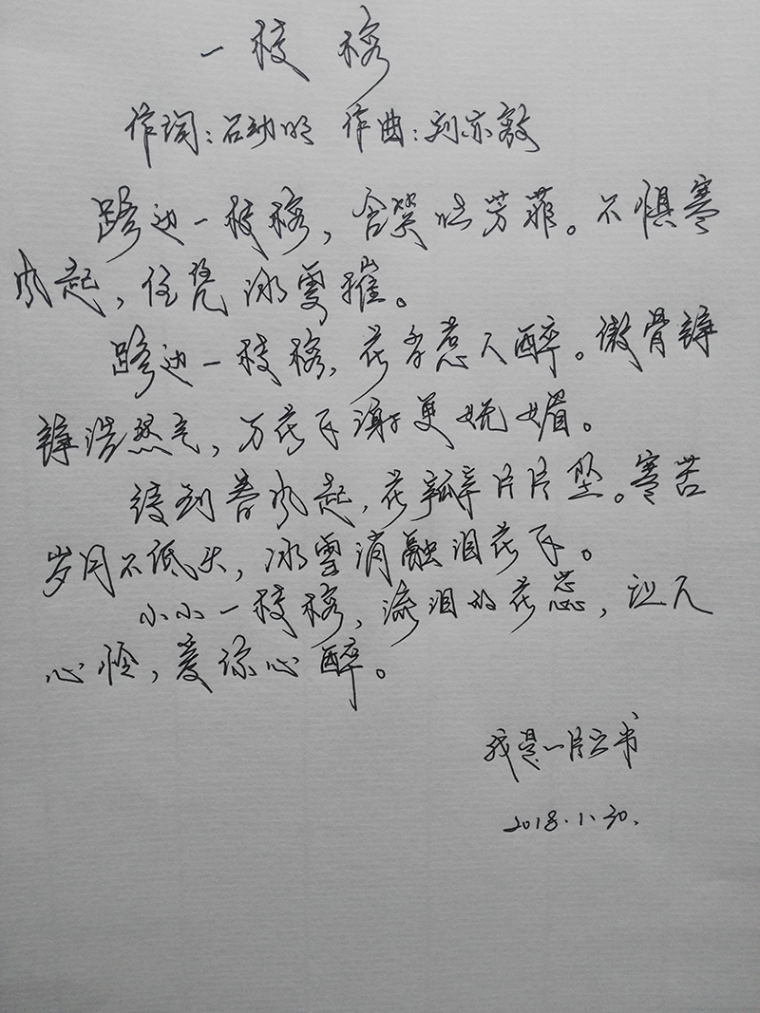 一枝梅
作词:石动明 作曲:刘亦敏
路边一枝梅,含笑吐芳菲。不惧寒
风起,任凭冰雪摧。
路边一枝梅,花香惹人醉。傲骨铮
铮浩然气,万花下谢更妩媚。
待到春风起,花瓣片片坠。寒苦
岁月不低头,冰雪消融泪花下。
小小一枝梅,流泪的花蕊,让人
心怜,爱你心醉。
我是一片云书
2018.1.30.